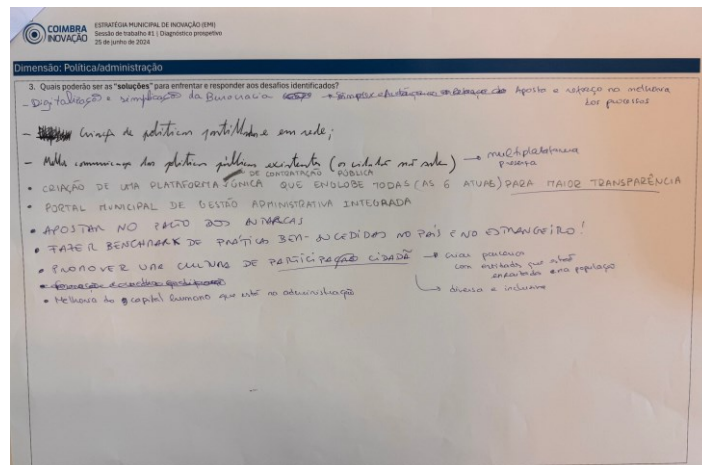 COIMBRA INOVAÇÃO
ESTRATÉGIA MUNICIPAL DE INOVAÇÃO (EMI)
Sessão de trabalho #1 | Diagnóstico prospetivo
25 de junho de 2024
Dimensão: Política/administração
3. Quais poderão ser as "soluções" para enfrentar e responder aos desafios identificados?
- Digitalização e simplificação da Burocracia → Aposta e reforço na melhoria
dos processos
- Criação de políticas partilhadas e em rede;
- Melhor comunicação das políticas públicas existentes (o cidadão não sabe) → multiplataforma
presença
DE CONTRATAÇÃO PÚBLICA
• CRIAÇÃO DE UMA PLATAFORMA ÚNICA QUE ENGLOBE TODAS (AS 6 ATUAIS) PARA MAIOR TRANSPARÊNCIA
• PORTAL MUNICIPAL DE GESTÃO ADMINISTRATIVA INTEGRADA
• APOSTAR NO DOS AUTARCAS
• FAZER BENCHMARK DE PRÁTICAS BEM-SUCEDIDAS NO PAÍS E NO ESTRANGEIRO!
• PROMOVER UMA CULTURA DE PARTICIPAÇÃO CIDADÃ → criar parcerias
com entidades que estão
na população
↳ diversa e inclusiva
• Melhoria do capital humano que está na administração